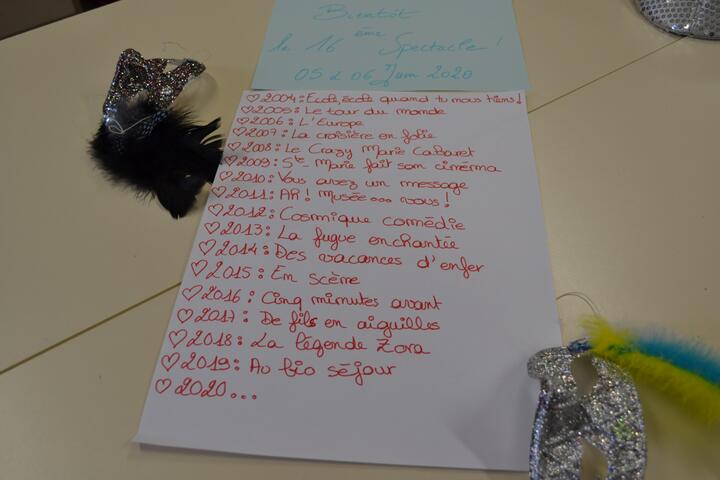 Bientôt
le 16 ème Spectacle !
05 & 06 Juin 2020
♡ 2004 : Ecole, école quand tu nous tiens !
♡ 2005 : Le tour du monde
♡ 2006 : L'Europe
♡ 2007 : La croisière en folie
♡ 2008 : Le Crazy Marie Cabaret
♡ 2009 : Ste-Marie fait son cinéma
♡ 2010 : Vous avez un message
♡ 2011 : AH ! Musée... vous !
♡ 2012 : Cosmique comédie
♡ 2013 : La fugue enchantée
♡ 2014 : Des vacances d'enfer
♡ 2015 : En scène
♡ 2016 : Cinq minutes avant
♡ 2017 : De fils en aiguilles
♡ 2018 : La légende Zora
♡ 2019 : Au bio séjour
♡ 2020...